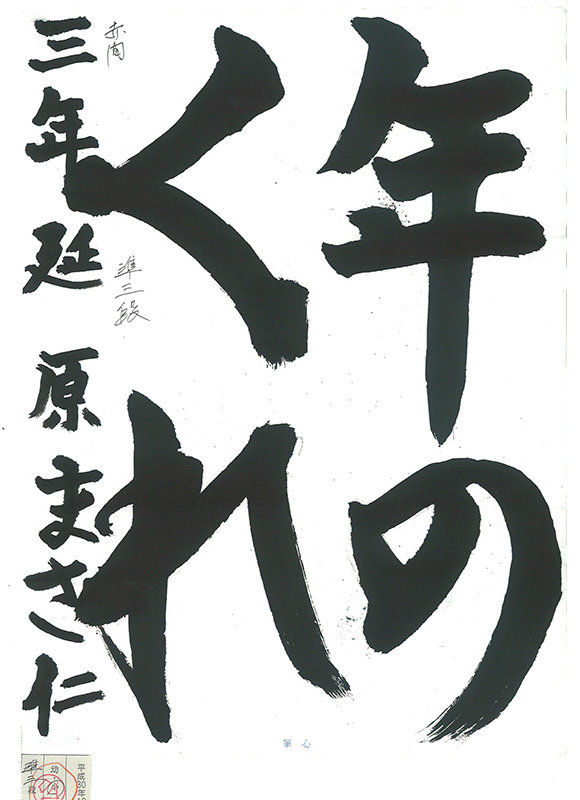 年の
くれ
三年 延 原 まさ仁
赤間
準三段
心筆
平成30年
幼・小
準三段